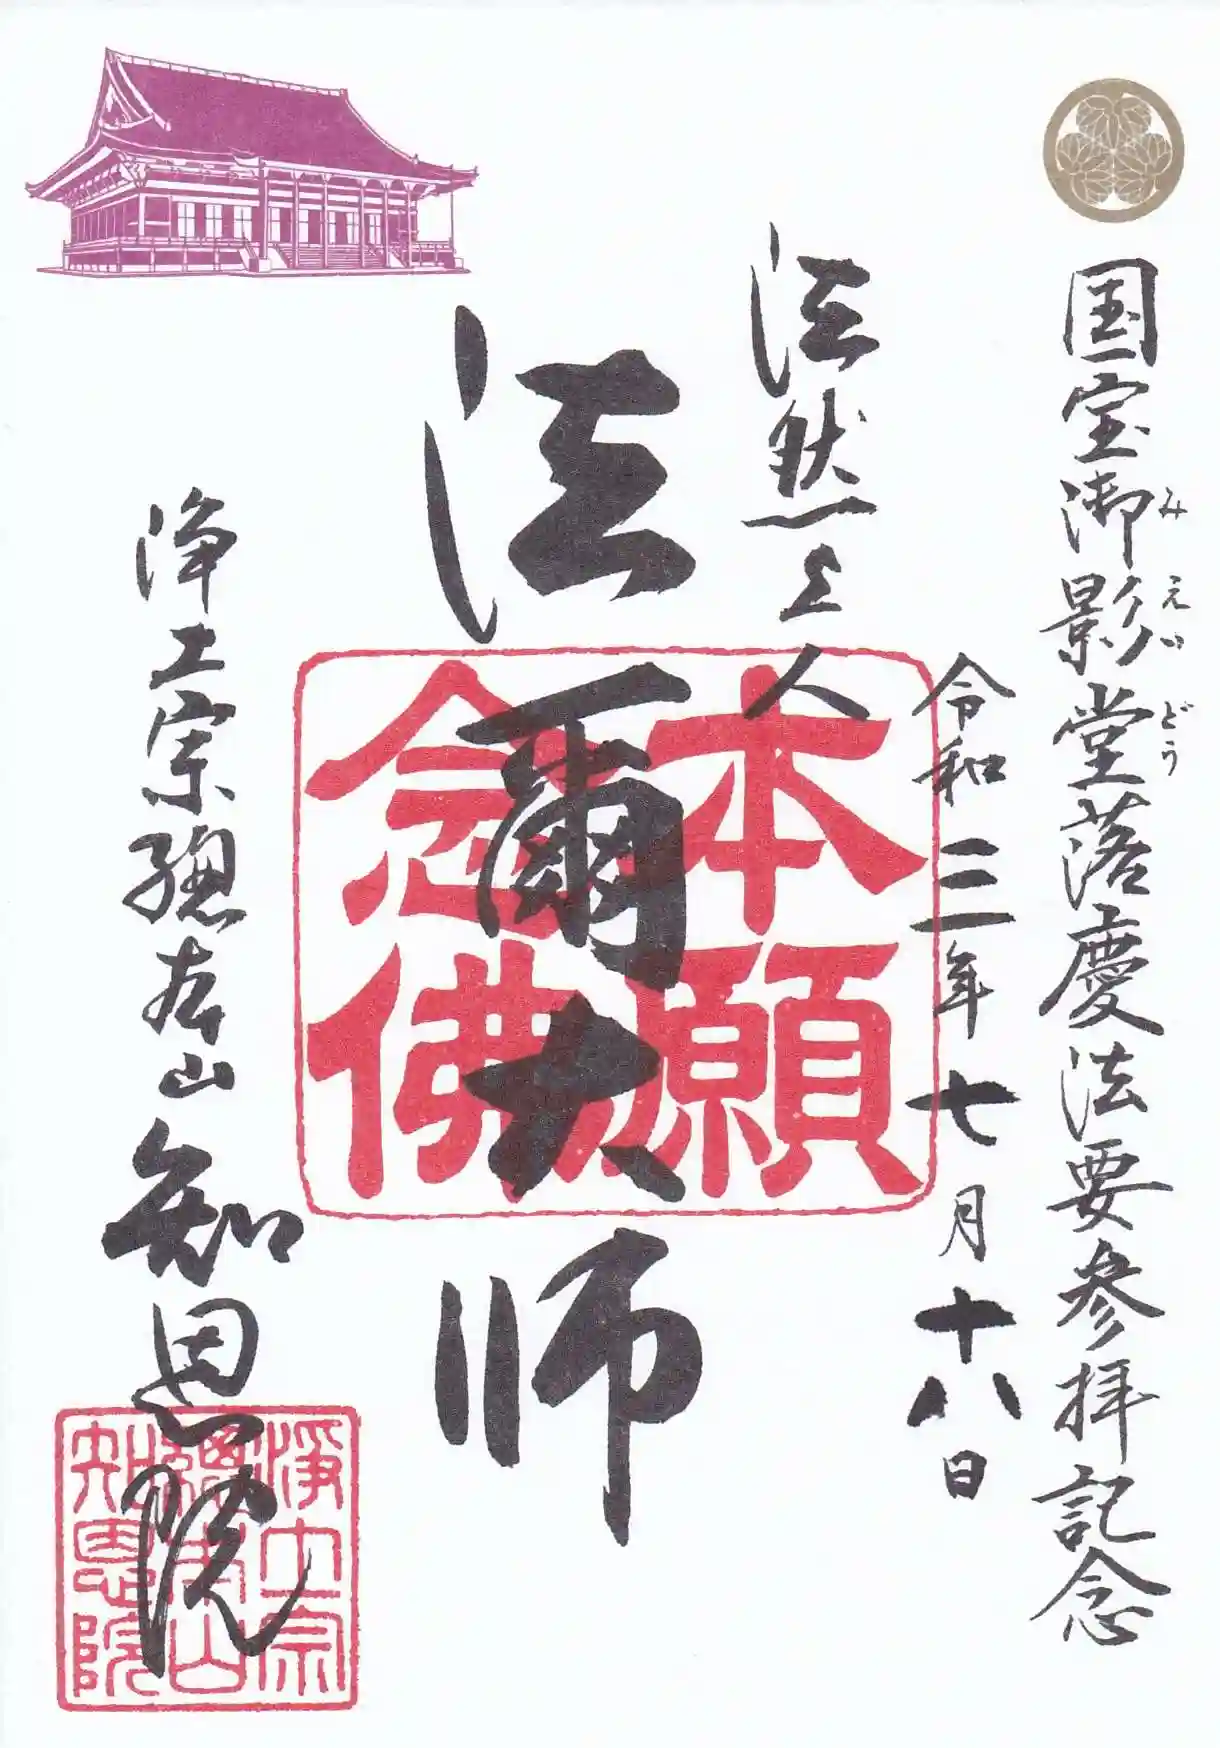 国宝御影堂落慶法要参拝記念
みえいどう
令和三年七月十八日
法然上人
法爾大師
本願
念佛
浄土宗總本山知恩院
浄土宗
總本山
知恩院